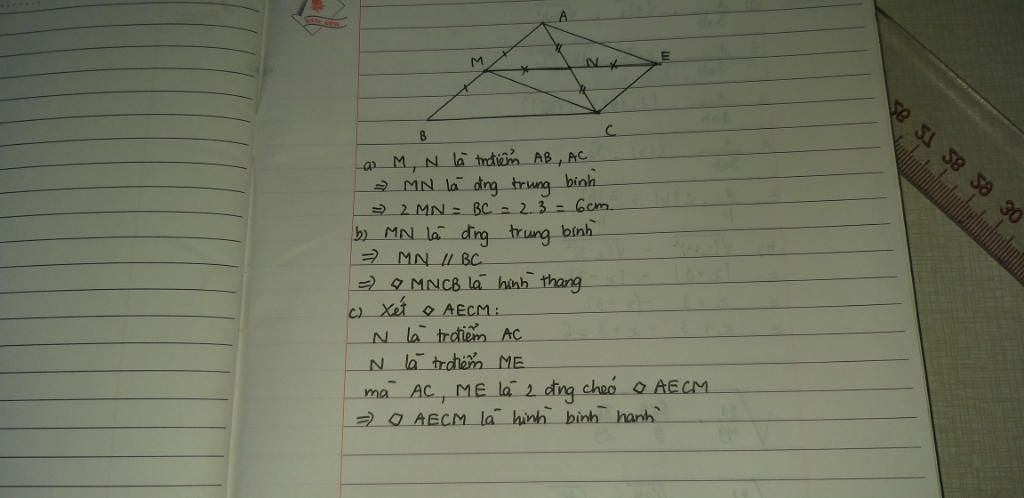 A
M
N
E
B
C
a) M, N là trđiểm AB, AC
⇒ MN là đng trung bình
⇒ 2MN = BC = 2.3 = 6cm
b) MN là đng trung bình
⇒ MN // BC
⇒ ◇ MNCB là hình thang
c) Xét ◇ AECM:
N là trđiểm AC
N là trđiểm ME
mà AC, ME là 2 đng chéo ◇ AECM
⇒ ◇ AECM là hình bình hành
30